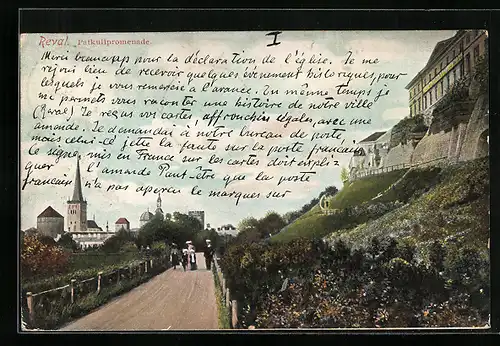 Reval. Patkullpromenade.
I
Merci beaucoup pour la déclaration de l'église. Je me
rejoui bien de recevoir quelques événement historiques, pour
lesquels je vous remercie à l'avance. En même temps je
me permets vous raconter une histoire de notre ville
(Reval) Je reçus vos cartes, affrouchies égales, avec une
amande. Je demandai à notre bureau de poste,
mais celui-ci jette la faute sur la poste français
le signe, mis en France sur les cartes doit expli-
quer l'amande Peut-être que la poste
français n'a pas aperçu le marques sur